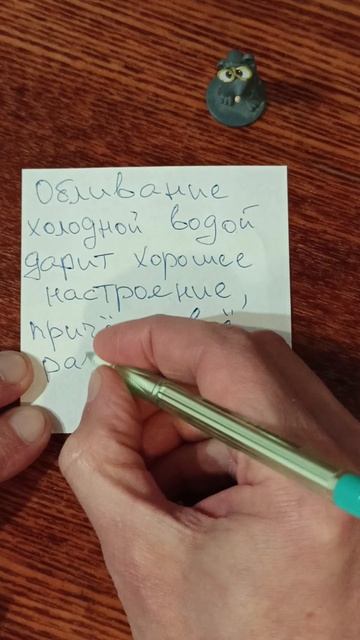 Обливание
холодной водой
дарит хорошее
настроение,